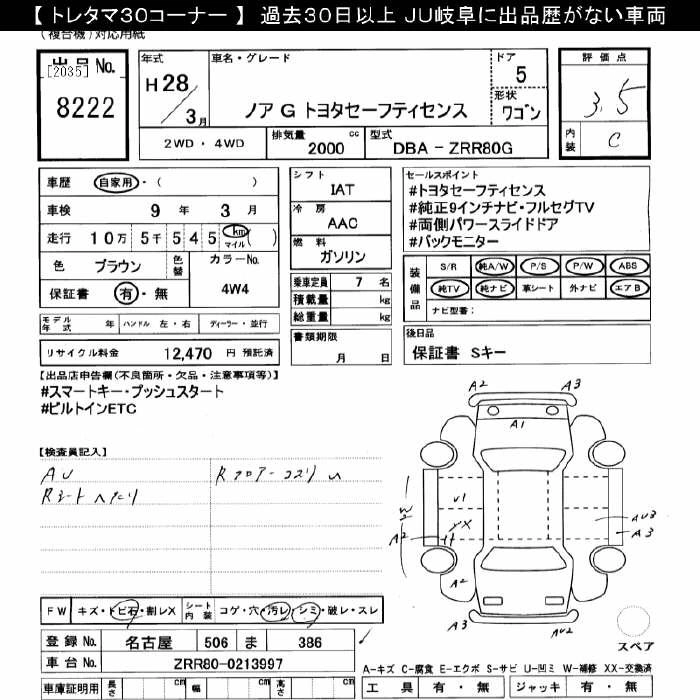 【 トレタマ30コーナー 】 過去30日以上 JU岐阜に出品歴がない車両
(複合機)対応用紙
出品 No.
[2035]
8222
年式
H 28
3月
車名・グレード
ノア G トヨタセーフティセンス
ドア
5
形状
ワゴン
2WD ・ 4WD
排気量 cc
2000
型式
DBA － ZRR80G
評価点
3.5
内装
C
車歴 自家用・( )
車検 9 年 3 月
走行 10万 5千 5 4 5 km マイル ( )
色 ブラウン 色替 カラーNo.
保証書 有・無 4W4
シフト
IAT
冷房
AAC
燃料
ガソリン
乗車定員 7 名
積載量 kg
総重量 kg
書類期限
月 日
セールスポイント
#トヨタセーフティセンス
#純正9インチナビ・フルセグTV
#両側パワースライドドア
#バックモニター
装備品
S/R 純A/W P/S P/W ABS
純TV 純ナビ 革シート 外ナビ エアB
ナビ型番：
モデル年式 年 ハンドル 左・右 ディーラー・並行
リサイクル料金 12,470 円 預託済
後日品
保証書 Sキー
【出品店申告欄(不良箇所・欠品・注意事項等)】
#スマートキー・プッシュスタート
#ビルトインETC
【検査員記入】
AU
Rフロアーコスリ
Rシートヘタリ
A2
A3
A1
W2
U1
XX
A2
AU3
A3
A2
A3
AU2
スペア
FW キズ・トビ石・割レX シート内装 コゲ・穴・汚レ・シミ・破レ・スレ
登録 No. 名古屋 506 ま 386
車台 No. ZRR80-0213997
車庫証明用 長さ cm 幅 cm 高さ cm
A-キズ C-腐食 E-エクボ S-サビ U-凹ミ W-補修 XX-交換済
工具 有・無 ジャッキ 有・無